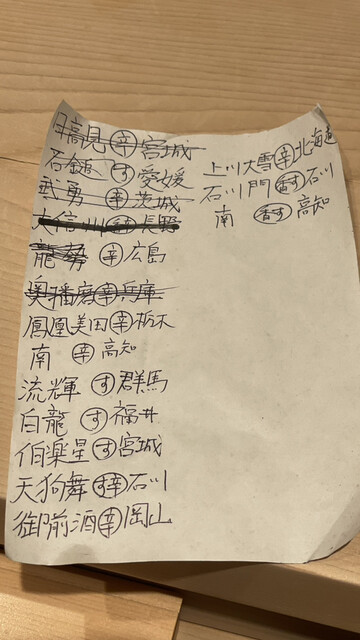 日高見 辛 宮城
石鎚 す 愛媛
武勇 辛 茨城
大信州 辛 長野
龍勢 辛 広島
奥播磨 辛 兵庫
鳳凰美田 辛 栃木
南 辛 高知
流輝 す 群馬
白龍 す 福井
伯楽星 す 宮城
天狗舞 辛 石川
御前酒 辛 岡山
上川大雪 辛 北海道
石川門 す 石川
南 す 高知